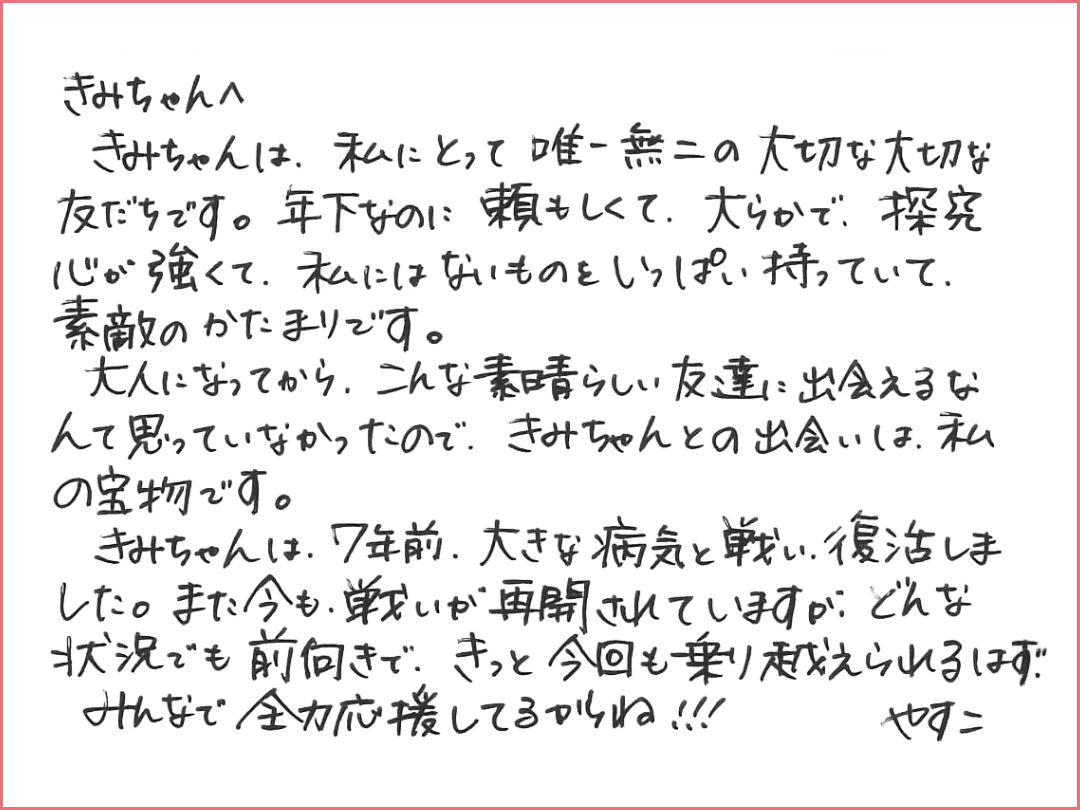 きみちゃんへ
きみちゃんは、私にとって唯一無二の大切な大切な
友だちです。年下なのに頼もしくて、大らかで、探究
心が強くて、私にはないものをいっぱい持っていて、
素敵のかたまりです。
大人になってから、こんな素晴らしい友達に出会えるな
んて思っていなかったので、きみちゃんとの出会いは、私
の宝物です。
きみちゃんは、7年前、大きな病気と戦い、復活しま
した。また今も、戦いが再開されていますが、どんな
状況でも前向きで、きっと今回も乗り越えられるはず。
みんなで全力応援してるからね!!!
やすこ